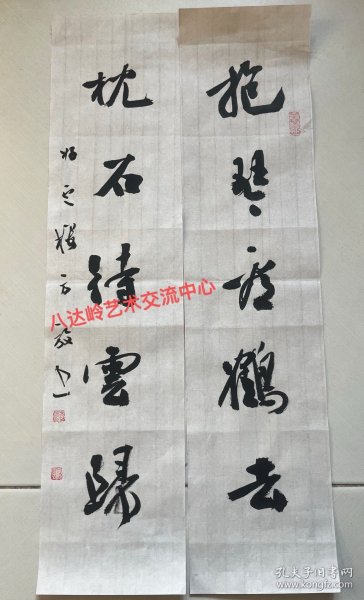 抱琴看鶴去
枕石待雲歸
八达岭艺术交流中心
孔夫子旧书网
www.kongfz.com